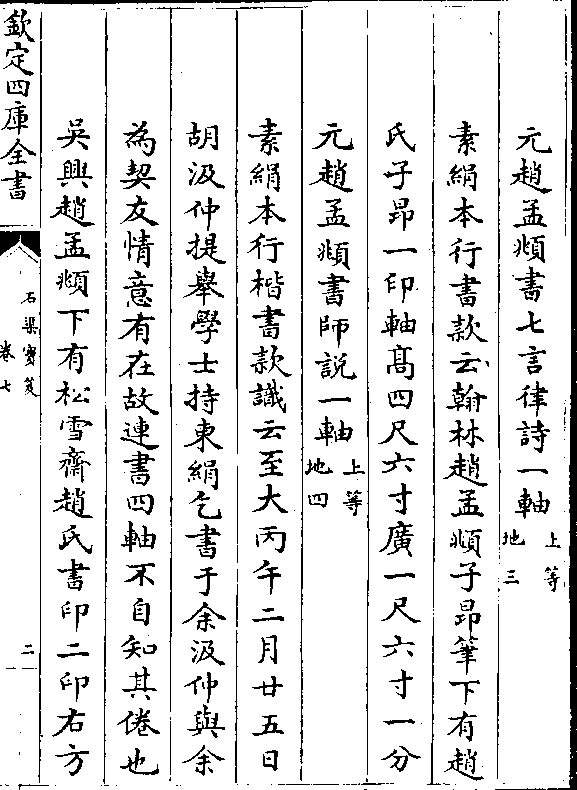 元趙孟頫書七言律詩一軸 上等 地三
素絹本行書款云翰林趙孟頫子昂筆下有趙
氏子昂一印軸髙四尺六寸廣一尺六寸一分
元趙孟頫書師説一軸 上等 地四
素絹本行楷書款識云至大丙午二月廿五日
胡汲仲提舉學士持東絹乞書于余汲仲與余
為契友情意有在故連書四軸不自知其倦也
吳興趙孟頫下有松雪齋趙氏書印二印右方
欽定四庫全書
石渠寶笈
卷七
二